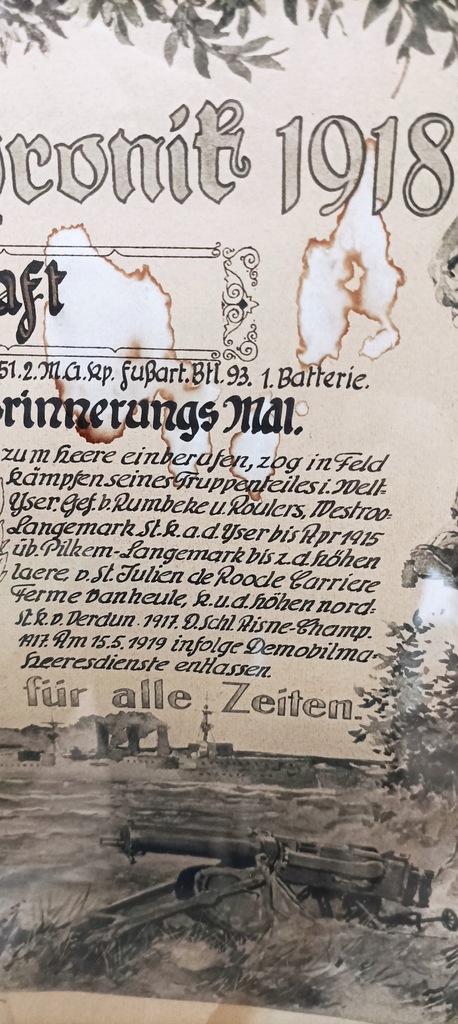 ronik 1918
aft
51. 2. M.G.Kp. Fußart. Btl. 93. 1. Batterie.
rinnerungs Mal.
zum Heere einberufen, zog in Feld
Kämpfen seines Truppenteiles i. Welt-
Yser. Gef. b. Rumbeke u. Roulers, Westroo-
Langemark St.k. a. d. Yser bis Apr 1915
üb. Pilkem-Langemark bis z.d. Höhen
laere. v. St. Julien de Roode Carriere
Ferme Vanheule, K. u. d. Höhen nord-
St.k. v. Verdun. 1917. D. Schl Aisne-Champ.
1917. Am 15.5. 1919 infolge Demobilma-
Heeresdienste entlassen.
für alle Zeiten.